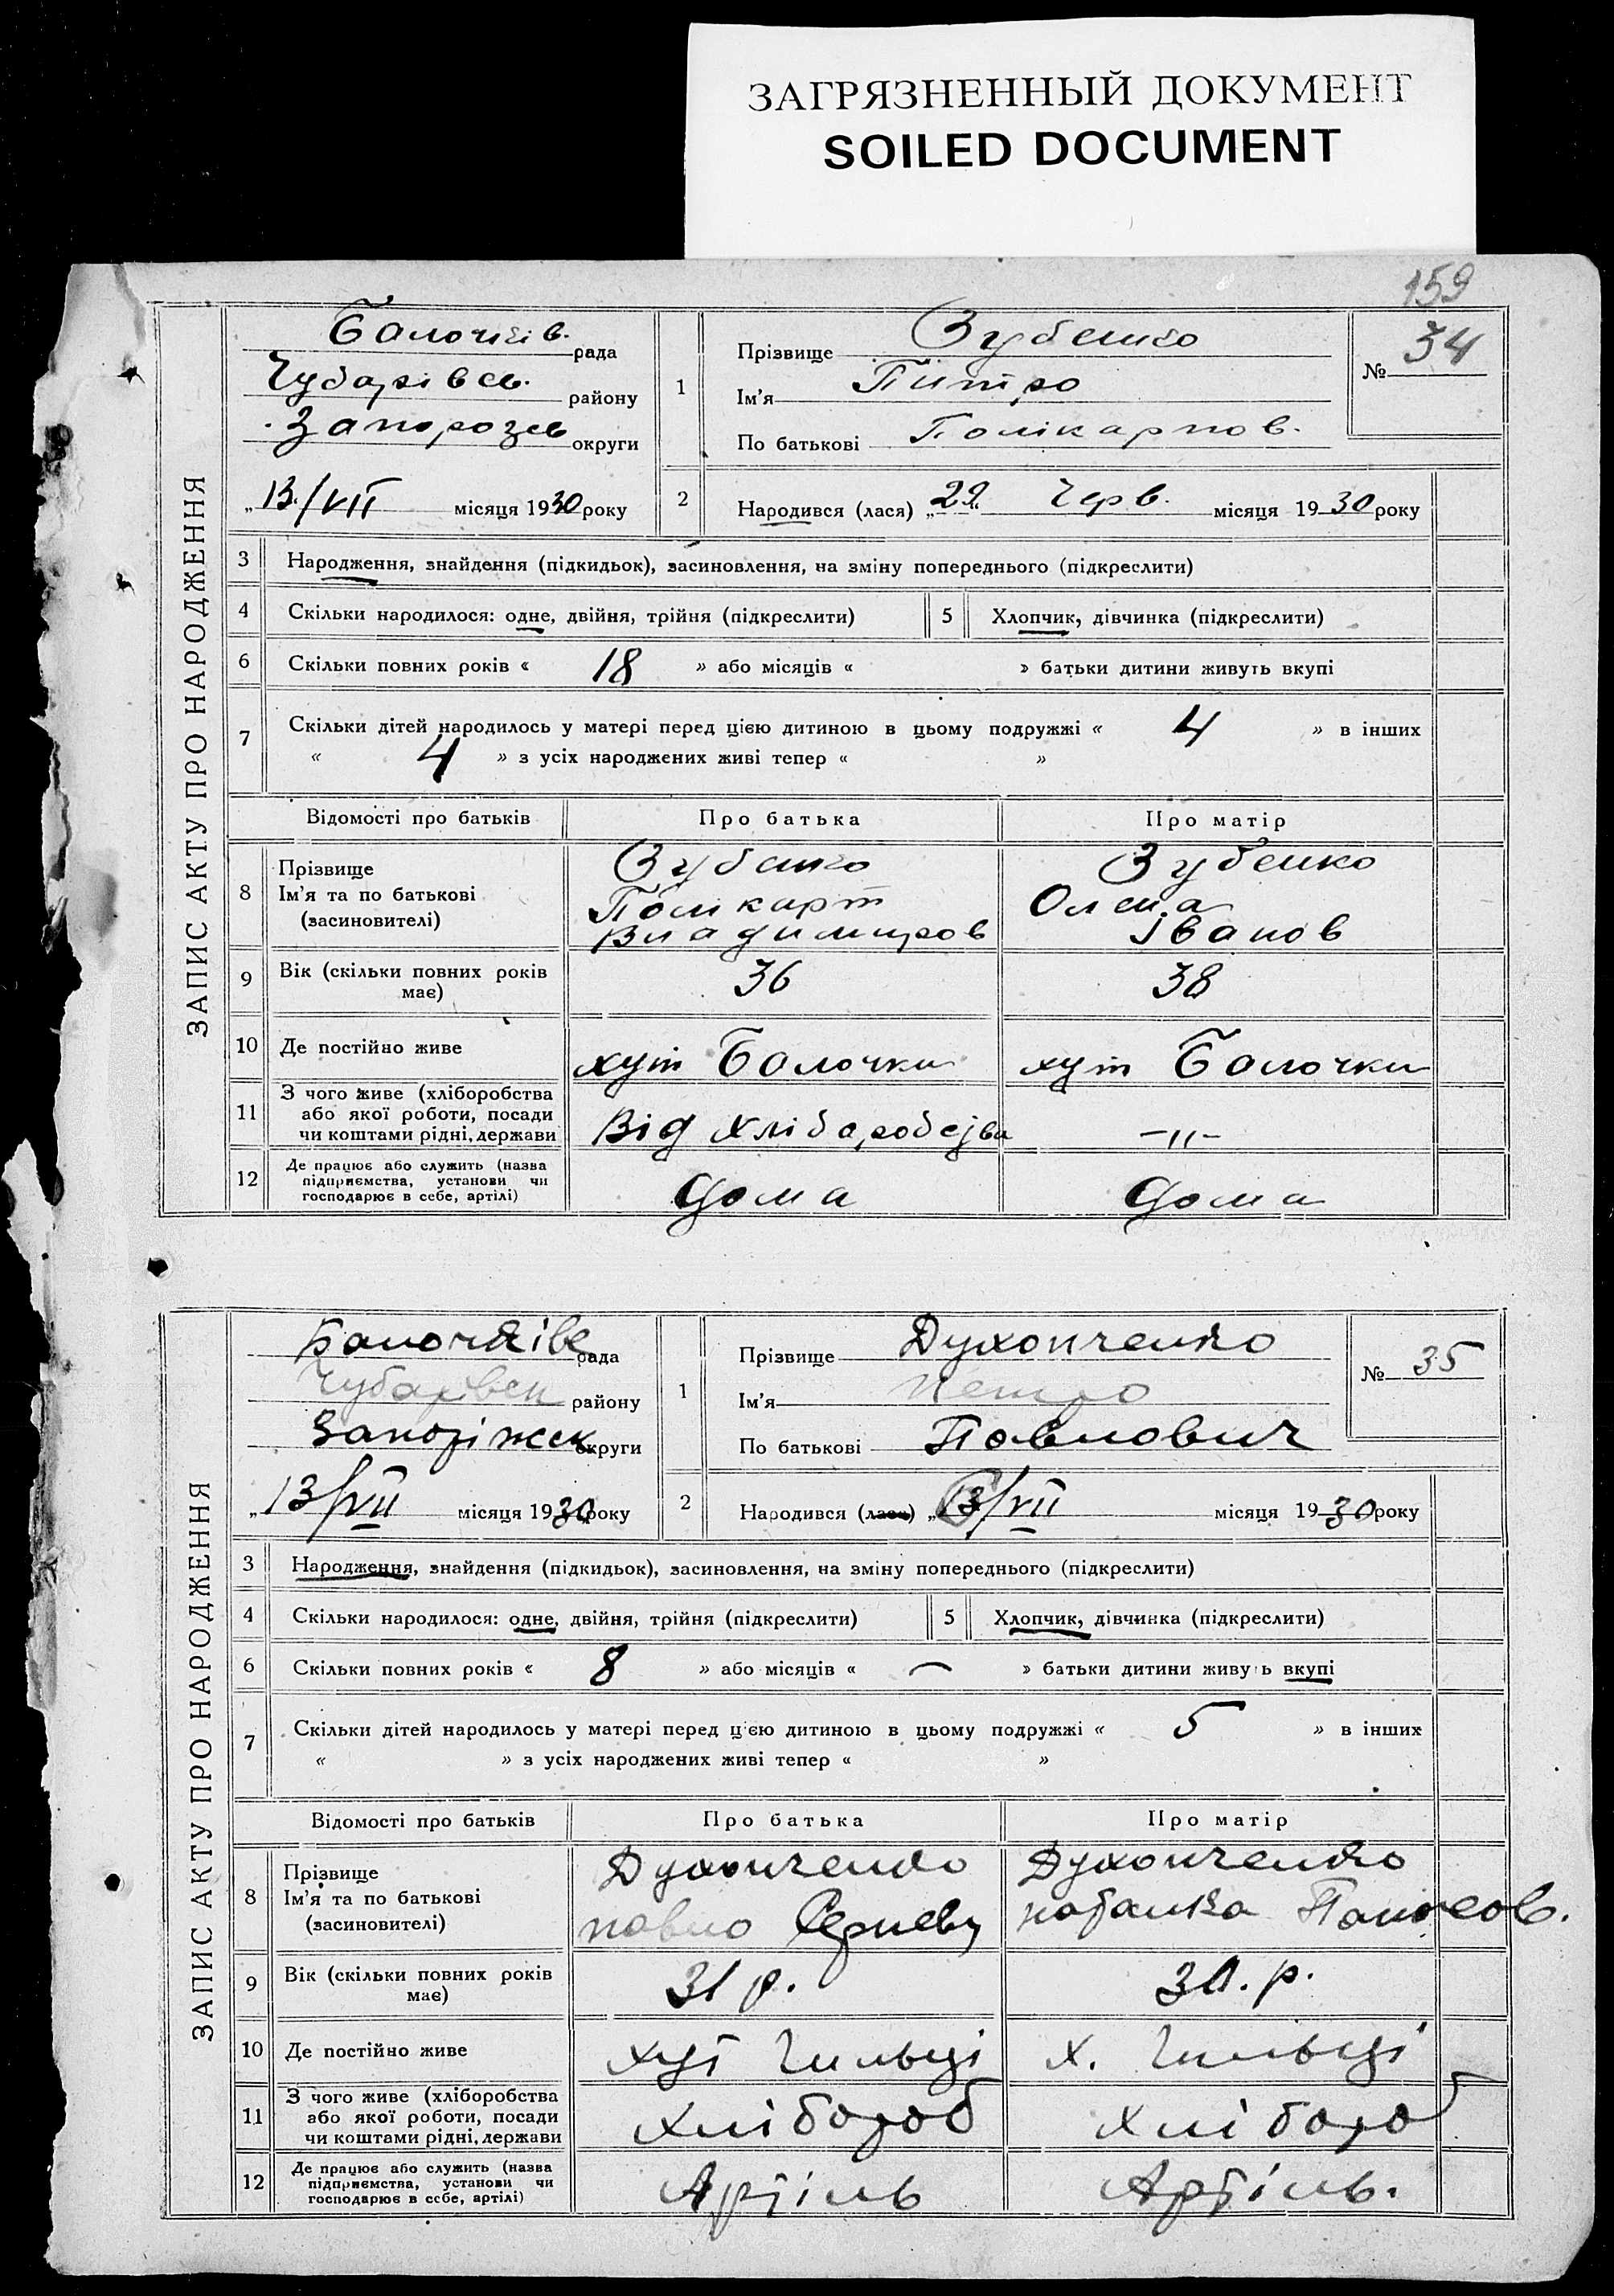 ЗАГРЯЗНЕННЫЙ ДОКУМЕНТ
SOILED DOCUMENT
159
ЗАПИС АКТУ ПРО НАРОДЖЕННЯ
Балочків. рада
Чубарівсь. району
Запорозь округи
„13/VII місяця 1930 року
1 Прізвище Зубенко
Ім'я Питро
По батькові Полікарпов.
№ 34
2 Народився (лася) „29“ Черв. місяця 1930 року
3 Народження, знайдення (підкидьок), засиновлення, на зміну попереднього (підкреслити)
4 Скільки народилося: одне, двійня, трійня (підкреслити) 5 Хлопчик, дівчинка (підкреслити)
6 Скільки повних років « 18 » або місяців « » батьки дитини живуть вкупі
7 Скільки дітей народилось у матері перед цією дитиною в цьому подружжі « 4 » в інших
« 4 » з усіх народжених живі тепер « »
Відомості про батьків Про батька Про матір
8 Прізвище Зубенко Зубенко
Ім'я та по батькові Полікарт Олена
(засновителі) Владимиров Іванов
9 Вік (скільки повних років має) 36 38
10 Де постійно живе хут Балочки хут Балочки
11 З чого живе (хліборобства
або якої роботи, посади
чи коштами рідні, держави Від хліба,робсјва -״-
12 Де працює або служить (назва
підприємства, установи чи
господарює в себе, артілі) дома дома
ЗАПИС АКТУ ПРО НАРОДЖЕННЯ
Балочківс рада
Чубарівськ району
Запоріжск округи
„13/VII місяця 1930 року
1 Прізвище Духонченко
Ім'я Петро
По батькові Павлович
№ 35
2 Народився (лася) „13/VII місяця 1930 року
3 Народження, знайдення (підкидьок), засиновлення, на зміну попереднього (підкреслити)
4 Скільки народилося: одне, двійня, трійня (підкреслити) 5 Хлопчик, дівчинка (підкреслити)
6 Скільки повних років « 8 » або місяців « — » батьки дитини живуть вкупі
7 Скільки дітей народилось у матері перед цією дитиною в цьому подружжі « 5 » в інших
« » з усіх народжених живі тепер « »
Відомості про батьків Про батька Про матір
8 Прізвище Духонченко Духонченко
Ім'я та по батькові Павло
(засиновителі)
9 Вік (скільки повних років має) 31 р. 30. р.
10 Де постійно живе хут Чильці х. Чильці
11 З чого живе (хліборобства
або якої роботи, посади
чи коштами рідні, держави Хлібороб Хлібороб
12 Де працює або служить (назва
підприємства, установи чи
господарює в себе, артілі) Артіль Артіль.